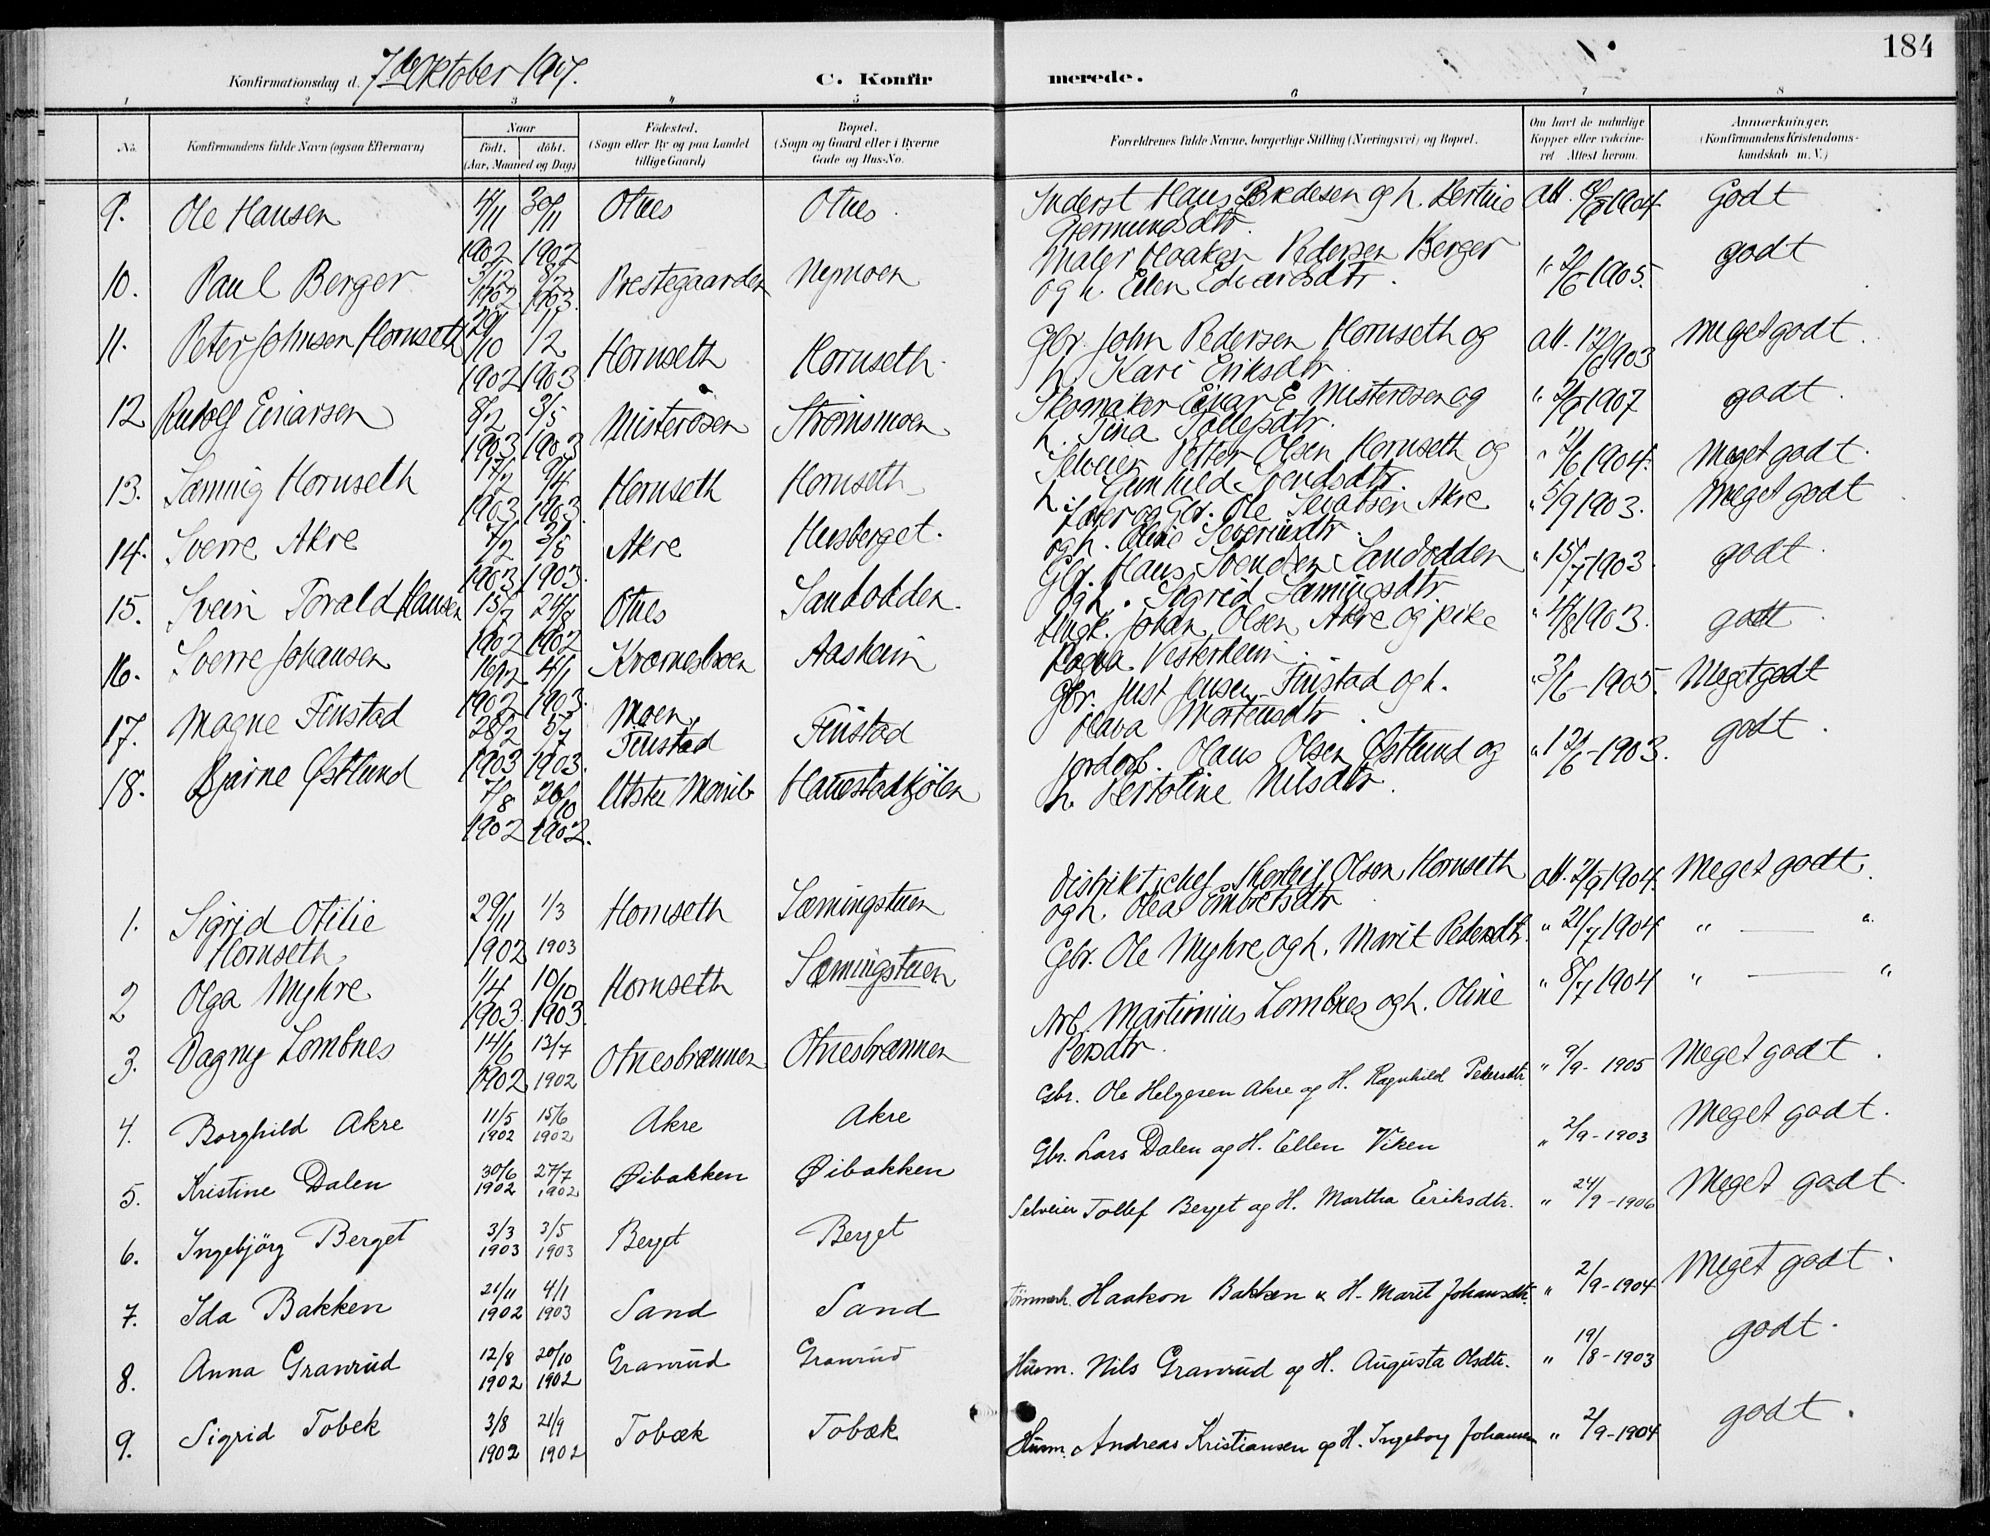 184
Konfirmationsdag d. 7de Oktober 1917.
C. Konfirmerede.
1 2 3 4 5 6 7 8
No. Konfirmandens fulde Navn (ogsaa Efternavn) Naar født. døbt. (Aar, Maaned og Dag) Fødested. (Sogn eller By og paa Landet tillige Gaard) Bopæl. (Sogn og Gaard eller i Byerne Gade og Hus-No. Forældrenes fulde Navne, borgerlige Stilling (Næringsvei) og Bopæl. Om havt de naturlige Kopper eller vaccineret Attest herom. Anmærkninger. (Konfirmandens Kristendomskundskab m. V.)
9. Ole Hansen 4/11 1902 30/11 1902 Otnes Otnes. Inderst Hans Bredesen og h. Bertine Gjermundsdtr. Att. 1904 Godt
10. Paul Berger 3/12 1902 8/2 1903 Prestegaarden Nymoen Maler Haakon Pedersen Berger og h. Elen Edvardsdtr. " 2/6 1905. godt
11. Peter Johnsen Hornseth 29/10 1902 1/2 1903 Hornseth Hornseth. Gbr. John Pedersen Hornseth og h. Kari Eriksdtr. Att. 1903 meget godt.
12 Rudolf Einarsen 8/2 1903 3/5 1903 Misterosen Strömsmoen Skomaker Einar E. Misterosen og h. Tina Tollefsdtr. " 1907 godt.
13. Sæming Hornseth 17/2 1903 9/4 1903 Hornseth Hornseth Selveier Petter Olsen Hornseth og h. Gunhild Svendsdtr. " 2/6 1904. Meget godt.
14. Sverre Akre 7/2 1903 3/5 1903. Akre Husberget. og Gbr. Ole Akre og h. Oline Severinsdtr. " 5/9 1903. Meget godt
15. Svein Torald Hansen 15/7 1902 24/8 1902 Otnes Sandodden. Gbr. Hans Svendsen Sandodden og h. Sigrid Sæmingsdtr. " 15/7 1903. godt.
16. Sverre Johansen 16/12 1902 4/1 1903. Kværnesbroen Aasheim Ungk. Johan Olsen Akre og pike Vesterheim. " 4/8 1903. godt.
17. Magne Finstad 28/2 1903 5/7 1903. Moen Finstad Finstad Gbr. Just Jensen Finstad og h. Olava Mortensdtr. " 3/6 - 1905. Meget godt
18. Bjarne Østlund 7/8 1902 26/10 1902. Hanestadkjölen Jordarb. Olaus Olsen Østlund og h. Bertoline Nilsdtr. " 12/6 - 1903. godt.
1. Sigrid Otilie Hornseth 29/11 1902 1/3 1903 Hornseth Sæmingstuen Distriktschef Olsen Hornseth og h. Olea Embretsdtr att. 2/9 1904. Meget godt.
2 Olga Myhre 1/4 1903. 10/10 1903. Hornseth Sæmingstuen Gbr. Ole Myhre og h. Marit Pedersdtr. " 21/7 1904 " — "
3. Dagny Lombnes 14/6 1902 13/7 1902 Otnesbrænnen Otnesbrænnen Arb. Martinius Lombnes og h. Oline Persdtr. " 8/7 1904 " — "
4. Borghild Akre 11/5 1902 15/6 1902 Akre Akre Gbr. Ole Helgesen Akre og H. Ragnhild Pedersdtr " 9/9 - 1905 Meget godt.
5. Kristine Dalen 30/6 1902 27/7 1902 Øibakken Øibakken Gbr. Lars Dalen og H. Ellen Viken " 2/9 - 1903 Meget godt.
6. Ingebjörg Berget 3/3 1903 3/5 1903 Berget Berget Selveier Tollef Berget og H. Martha Eriksdtr. " 24/9 - 1906 Meget godt.
7. Ida Bakken 21/11 1902 4/1 1903 Sand Sand Tömmerh. Haakon Bakken & H. Marit Johansdtr. " 2/9 - 1904 Meget godt.
8. Anna Granrud 12/8 1902 20/10 1902 Granrud Granrud Husm. Nils Granrud og H. Augusta Olsdtr. " 19/8 - 1903 godt.
9. Sigrid Tobek 3/8 1902 21/9 1902 Tobæk Tobæk Husm. Andreas Kristiansen og H. Ingeborg Johansen " 2/9 - 1904 godt.